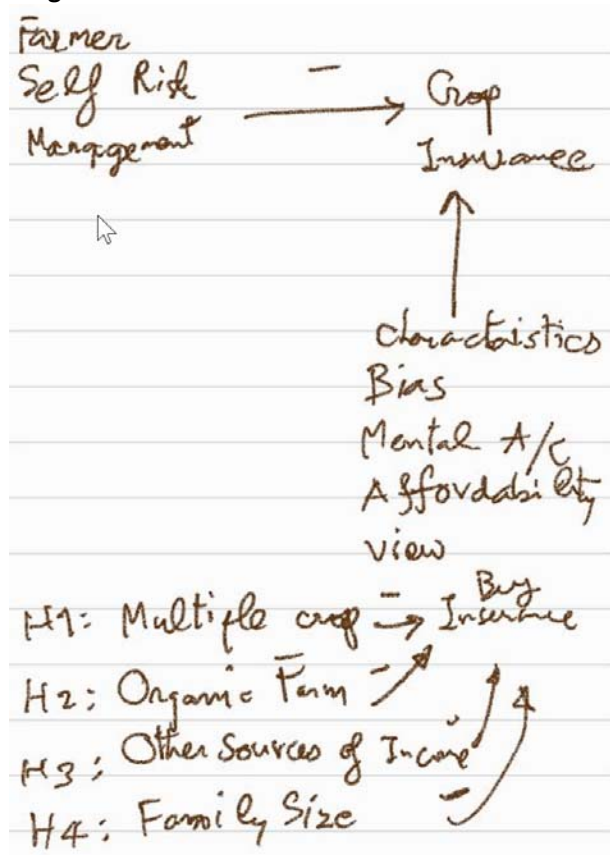 Farmer
Self Risk - Crop
Management Insurance
Characteristics
Bias
Mental A/c
Affordability
view
H1: Multiple crop - Buy Insurance
H2: Organic Farm -
H3: Other Sources of Income -
H4: Family Size -